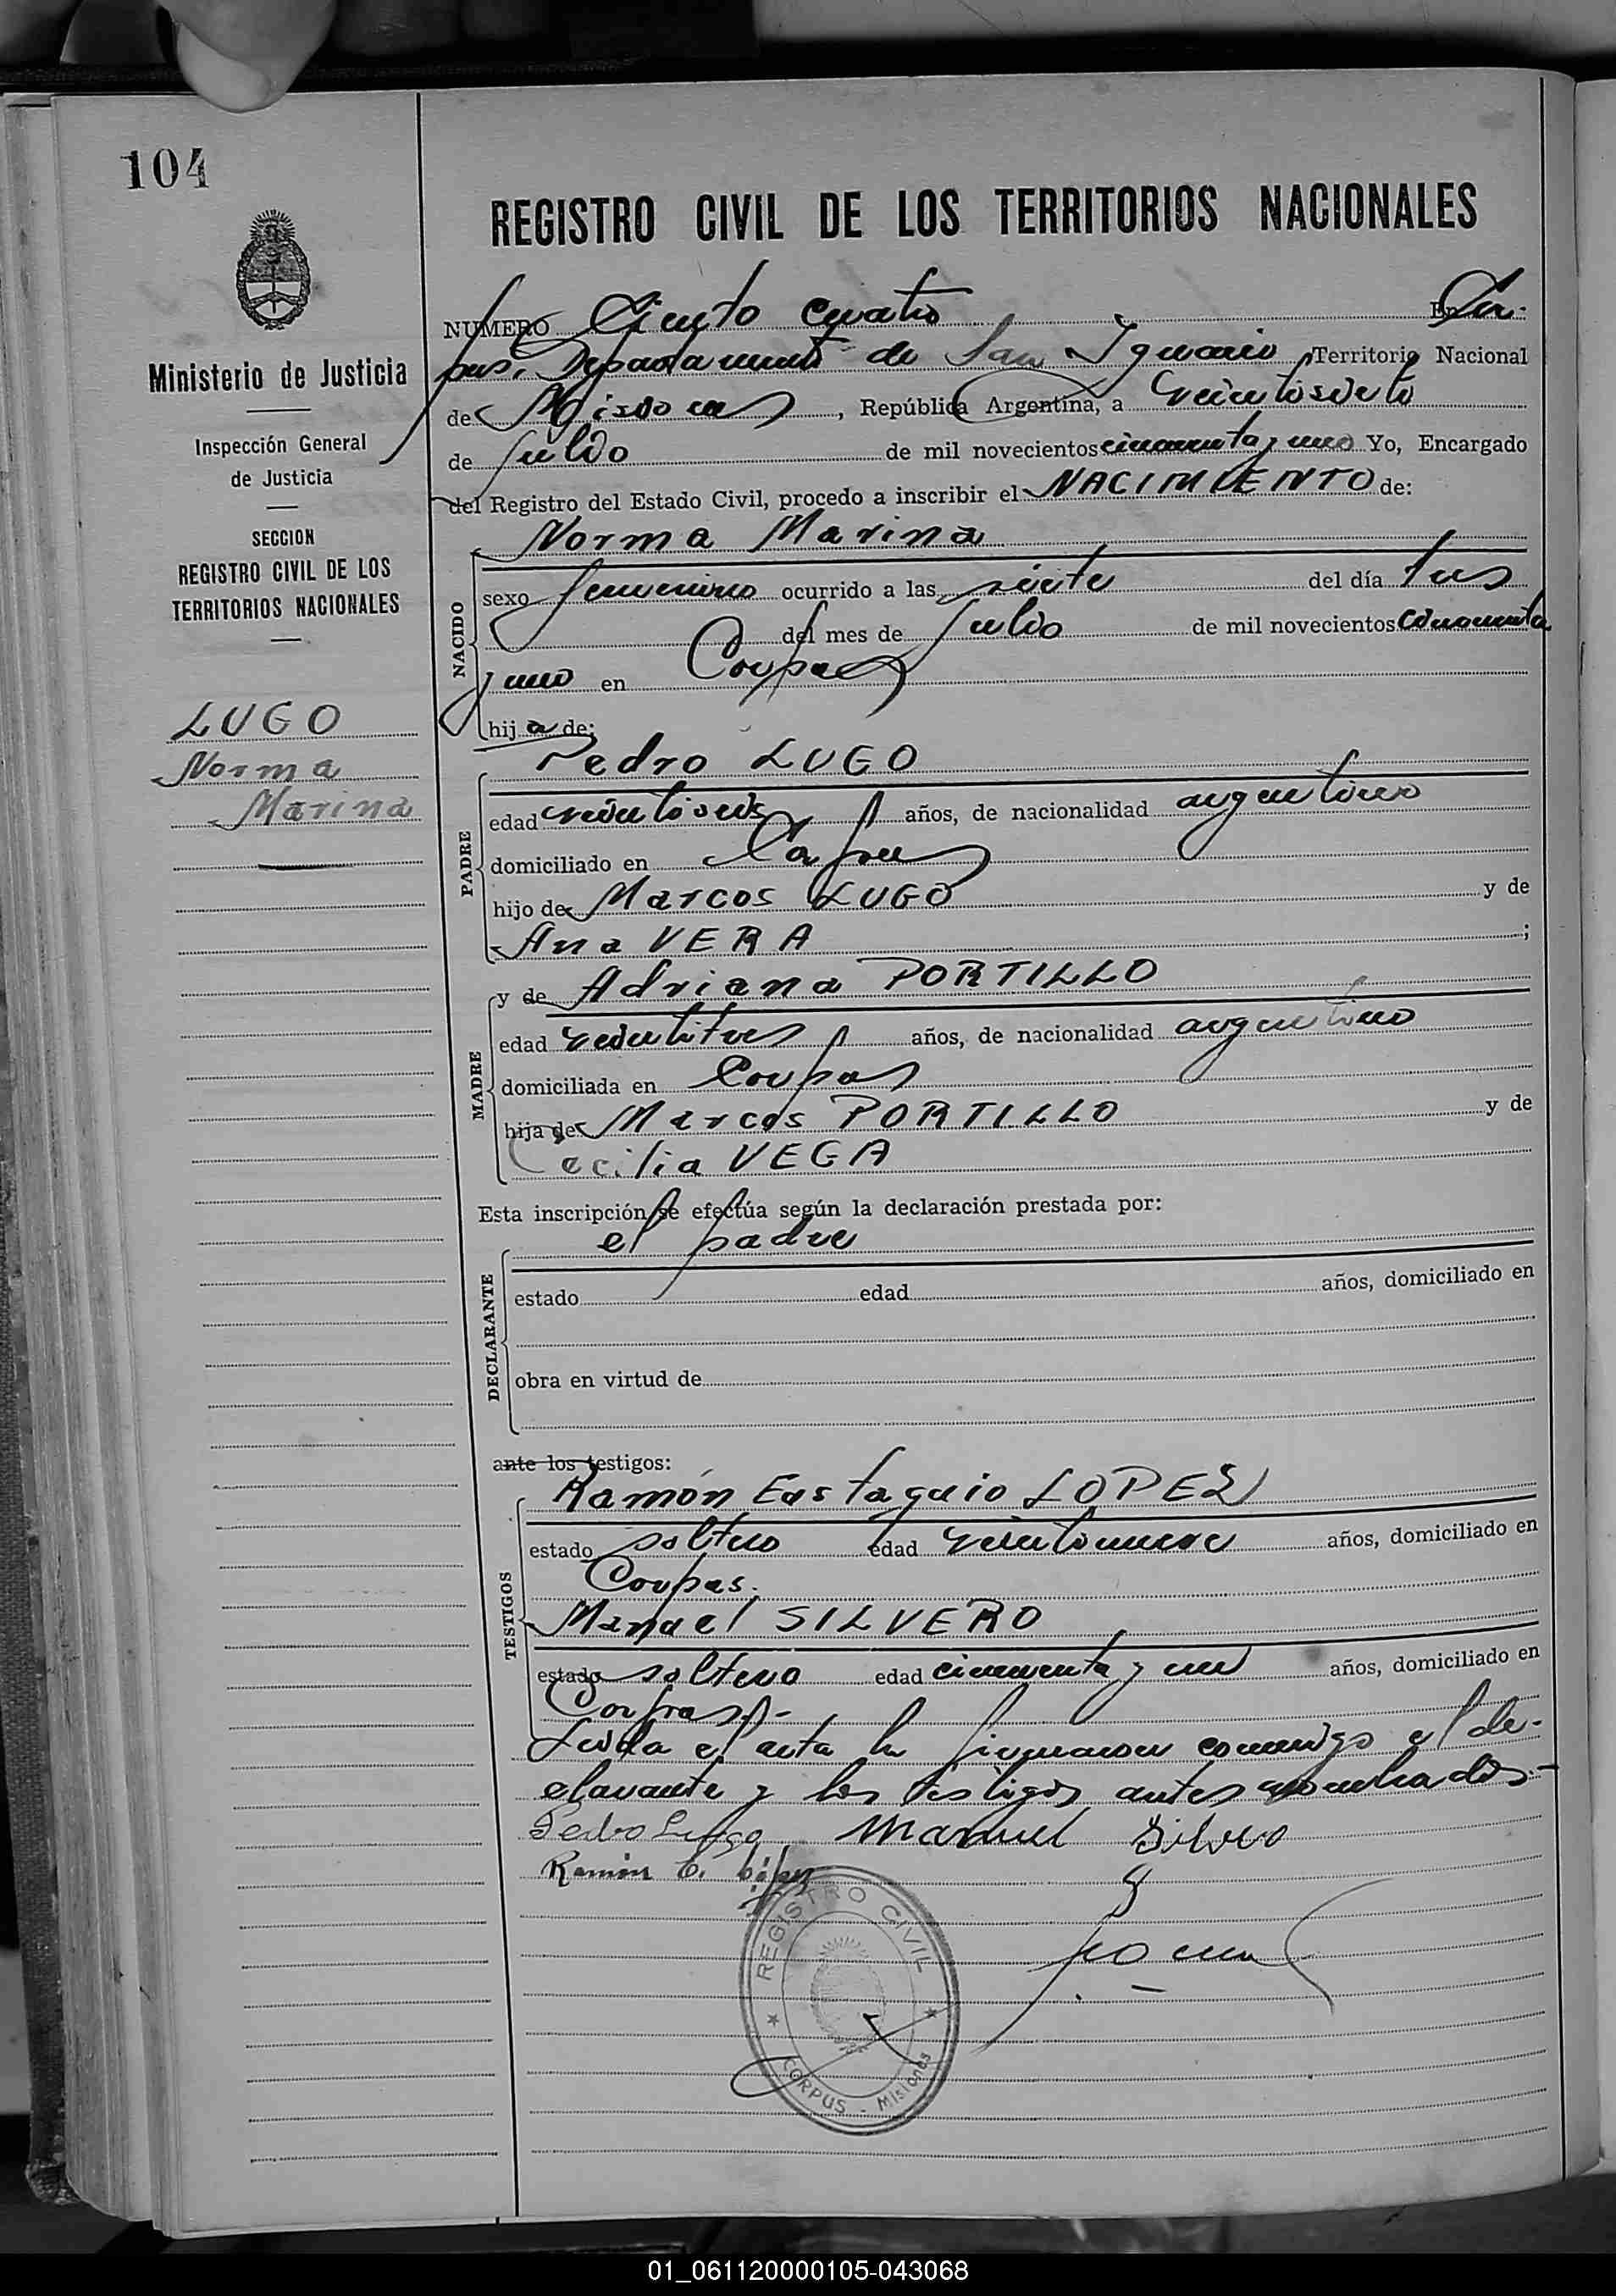 104
Ministerio de Justicia
Inspección General
de Justicia
SECCION
REGISTRO CIVIL DE LOS
TERRITORIOS NACIONALES
LUGO
Norma
Marina
REGISTRO CIVIL DE LOS TERRITORIOS NACIONALES
NUMERO Ciento cuatro En Cor-
pus, Departamento de San Ignacio, Territorio Nacional
de Misiones, República Argentina, a veintisiete
de Julio de mil novecientos cincuenta y uno Yo, Encargado
del Registro del Estado Civil, procedo a inscribir el NACIMIENTO de:
Norma Marina
NACIDO
sexo femenino ocurrido a las siete del día tres
del mes de Julio de mil novecientos cincuenta
y uno en Corpus
hija de:
Pedro LUGO
PADRE
edad veintiseis años, de nacionalidad argentino
domiciliado en Corpus
hijo de Marcos LUGO y de
Ana VERA ;
MADRE
y de Adriana PORTILLO
edad veintitres años, de nacionalidad argentino
domiciliada en Corpus
hija de Marcos PORTILLO y de
Cecilia VEGA
Esta inscripción se efectúa según la declaración prestada por:
el padre
DECLARANTE
estado edad años, domiciliado en
obra en virtud de
ante los testigos:
Ramón Eustaquio LOPEZ
TESTIGOS
estado soltero edad veintinueve años, domiciliado en
Corpus.
Manuel SILVERO
estado soltero edad cincuenta y un años, domiciliado en
Corpus.-
Leida el acta la firmaron conmigo el de-
clarante y los testigos antes nombrados.-
Pedro Lugo Manuel Silvero
Ramón E. López
REGISTRO CIVIL
CORPUS - Misiones
01_061120000105-043068